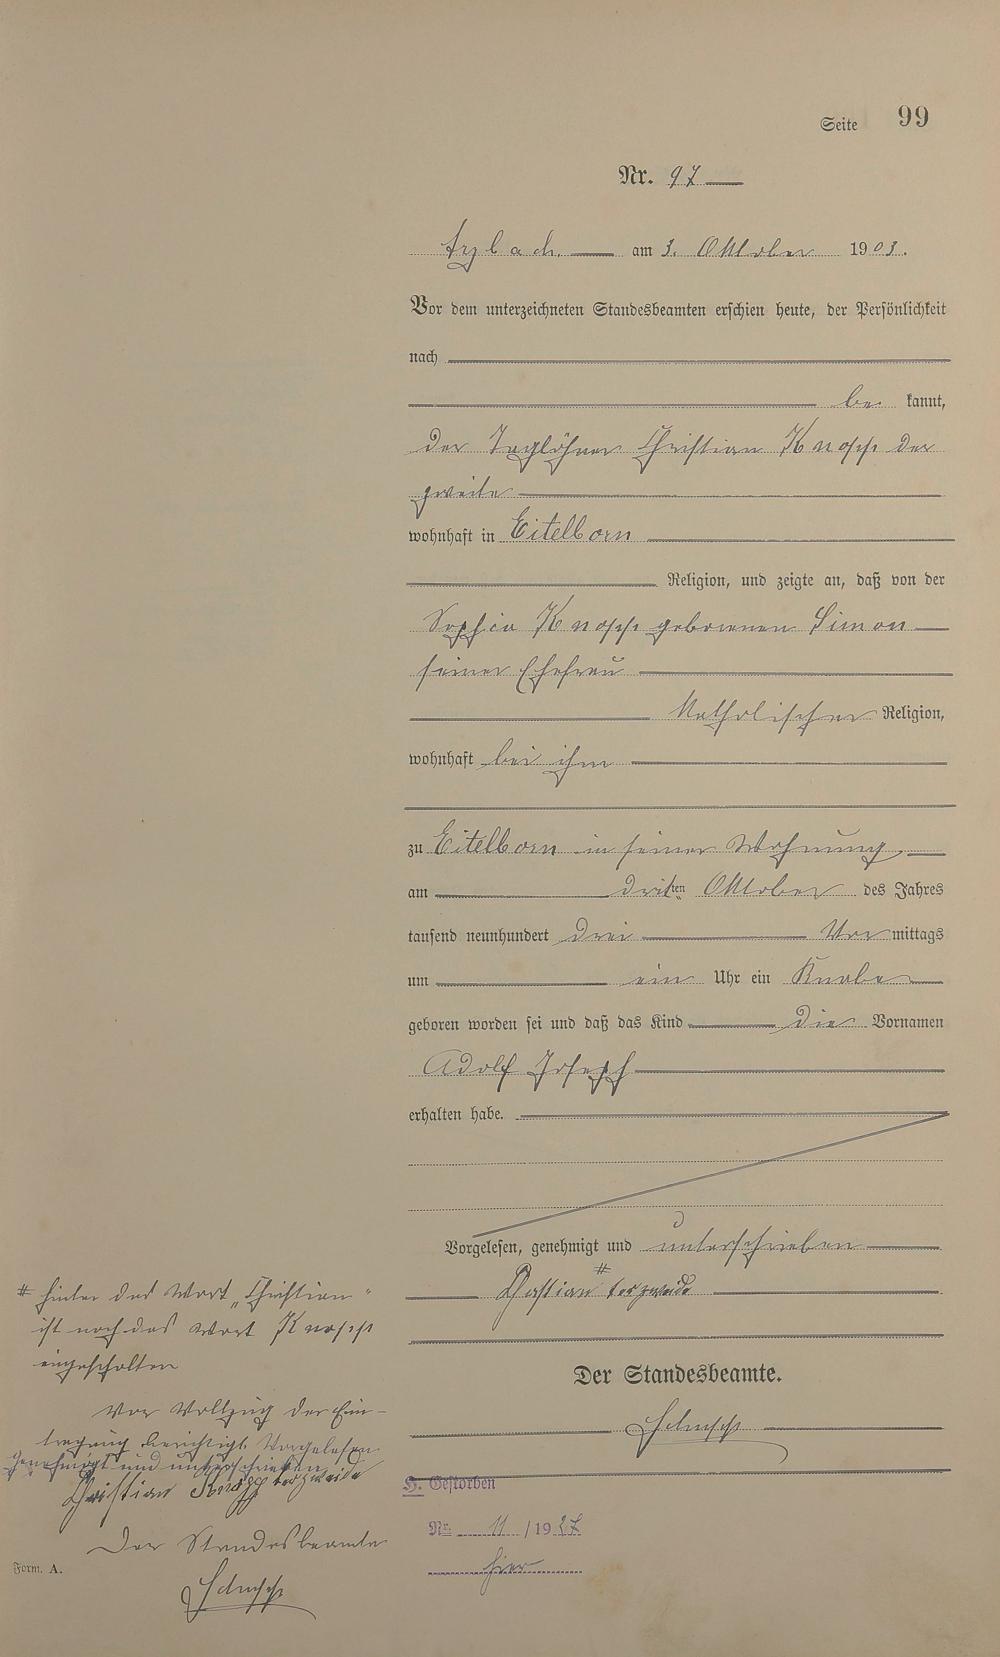 Seite 99
Nr. 97
Arzbach am 3. Oktober 1903.
Vor dem unterzeichneten Standesbeamten erschien heute, der Persönlichkeit
nach
be kannt,
der Taglöhner Christian Knopp der
zweite
wohnhaft in Eitelborn
Religion, und zeigte an, daß von der
Sophia Knopp geborenen Simon
seiner Ehefrau
katholischer Religion,
wohnhaft bei ihm
zu Eitelborn in seiner Wohnung,
am dritten Oktober des Jahres
tausend neunhundert drei Vor mittags
um ein Uhr ein Knabe
geboren worden sei und daß das Kind die Vornamen
Adolf Joseph
erhalten habe.
Vorgelesen, genehmigt und unterschrieben
# der zweide
Der Standesbeamte.
# hinter das Wort „Christian"
ist noch das Wort Knopp
eingeschalten
Vor Vollzug der Ein-
tragung berichtigt. Vorgelesen
genehmigt und unterschrieben
Christian Knopp der zweide
Der Standesbeamte
H. Gestorben
Nr. 11 / 1927
hier
Form. A.